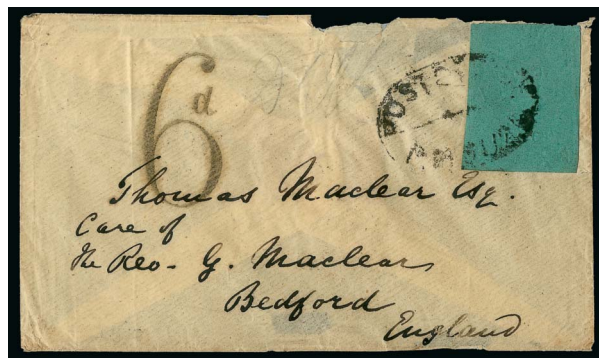 6d
POST O
Thomas Maclear Esq.
Care of
The Rev. G. Maclear
Bedford
England